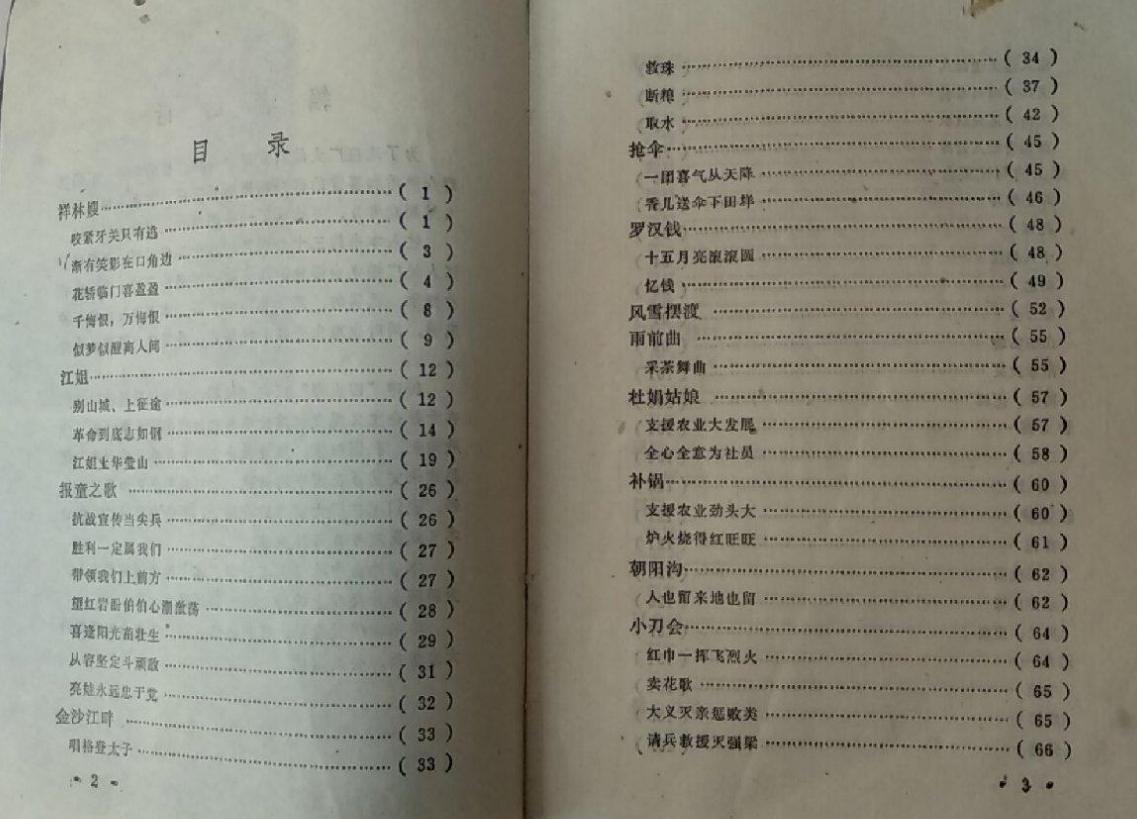 目 录
祥林嫂 ( 1 )
咬紧牙关只有逃 ( 1 )
渐有笑影在口角边 ( 3 )
花轿临门喜盈盈 ( 4 )
千悔恨,万悔恨 ( 8 )
似梦似醒离人间 ( 9 )
江姐 ( 12 )
别山城、上征途 ( 12 )
革命到底志如钢 ( 14 )
江姐上华蓥山 ( 19 )
报童之歌 ( 26 )
抗战宣传当尖兵 ( 26 )
胜利一定属我们 ( 27 )
带领我们上前方 ( 27 )
望红岩盼伯伯心潮激荡 ( 28 )
喜逢阳光苗壮生 ( 29 )
从容坚定斗顽敌 ( 31 )
亮娃永远忠于党 ( 32 )
金沙江畔 ( 33 )
唱格登太子 ( 33 )
· 2 ·
救珠 ( 34 )
断粮 ( 37 )
取水 ( 42 )
抢伞 ( 45 )
一团喜气从天降 ( 45 )
香儿送伞下田垟 ( 46 )
罗汉钱 ( 48 )
十五月亮滚滚圆 ( 48 )
忆钱 ( 49 )
风雪摆渡 ( 52 )
雨前曲 ( 55 )
采茶舞曲 ( 55 )
杜娟姑娘 ( 57 )
支援农业大发展 ( 57 )
全心全意为社员 ( 58 )
补锅 ( 60 )
支援农业劲头大 ( 60 )
炉火烧得红旺旺 ( 61 )
朝阳沟 ( 62 )
人也留来地也留 ( 62 )
小刀会 ( 64 )
红巾一挥飞烈火 ( 64 )
卖花歌 ( 65 )
大义灭亲惩败类 ( 65 )
请兵救援灭强梁 ( 66 )
· 3 ·